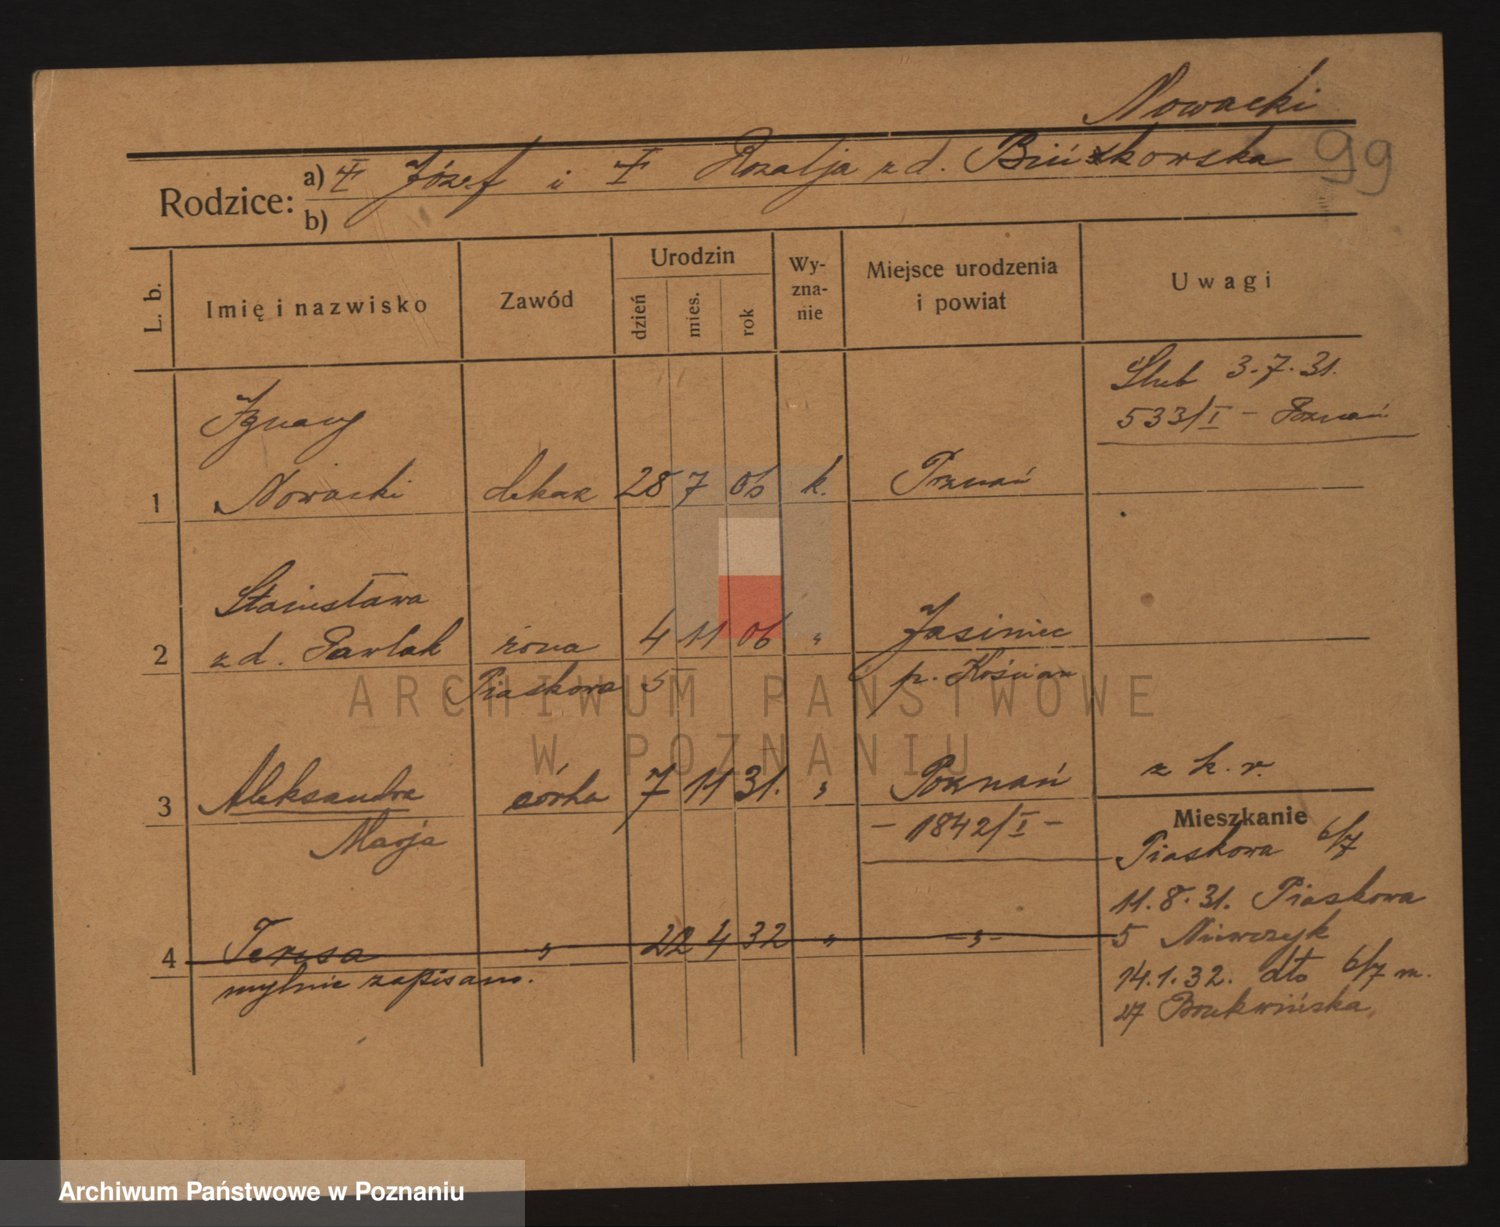 Nowacki
99
Rodzice: a) Józef i Rozalja z d.
b)
L. b. Imię i nazwisko Zawód Urodzin dzień mies. rok Wy-zna-nie Miejsce urodzenia i powiat Uwagi
Ślub 3.7.31.
533/I – Poznań
Ignacy
1 Nowacki 28 7 06 k. Poznań
Stanisława
2 z d. Pawlak żona 4 11 06 " Jasiniec
Piaskowa 5 p. Kościan
3 Aleksandra córka 7 11 31. " Poznań z k. r.
Marja – 1842/I –
Mieszkanie
Piaskowa 6/7
11.8.31. Piaskowa
4 Teresa " 22 4 32 " – " – 5 Niewczyk
mylnie zapisano. 14.1.32. dto 6/7 m.
27 Brukwińska
ARCHIWUM PAŃSTWOWE
W POZNANIU
Archiwum Państwowe w Poznaniu